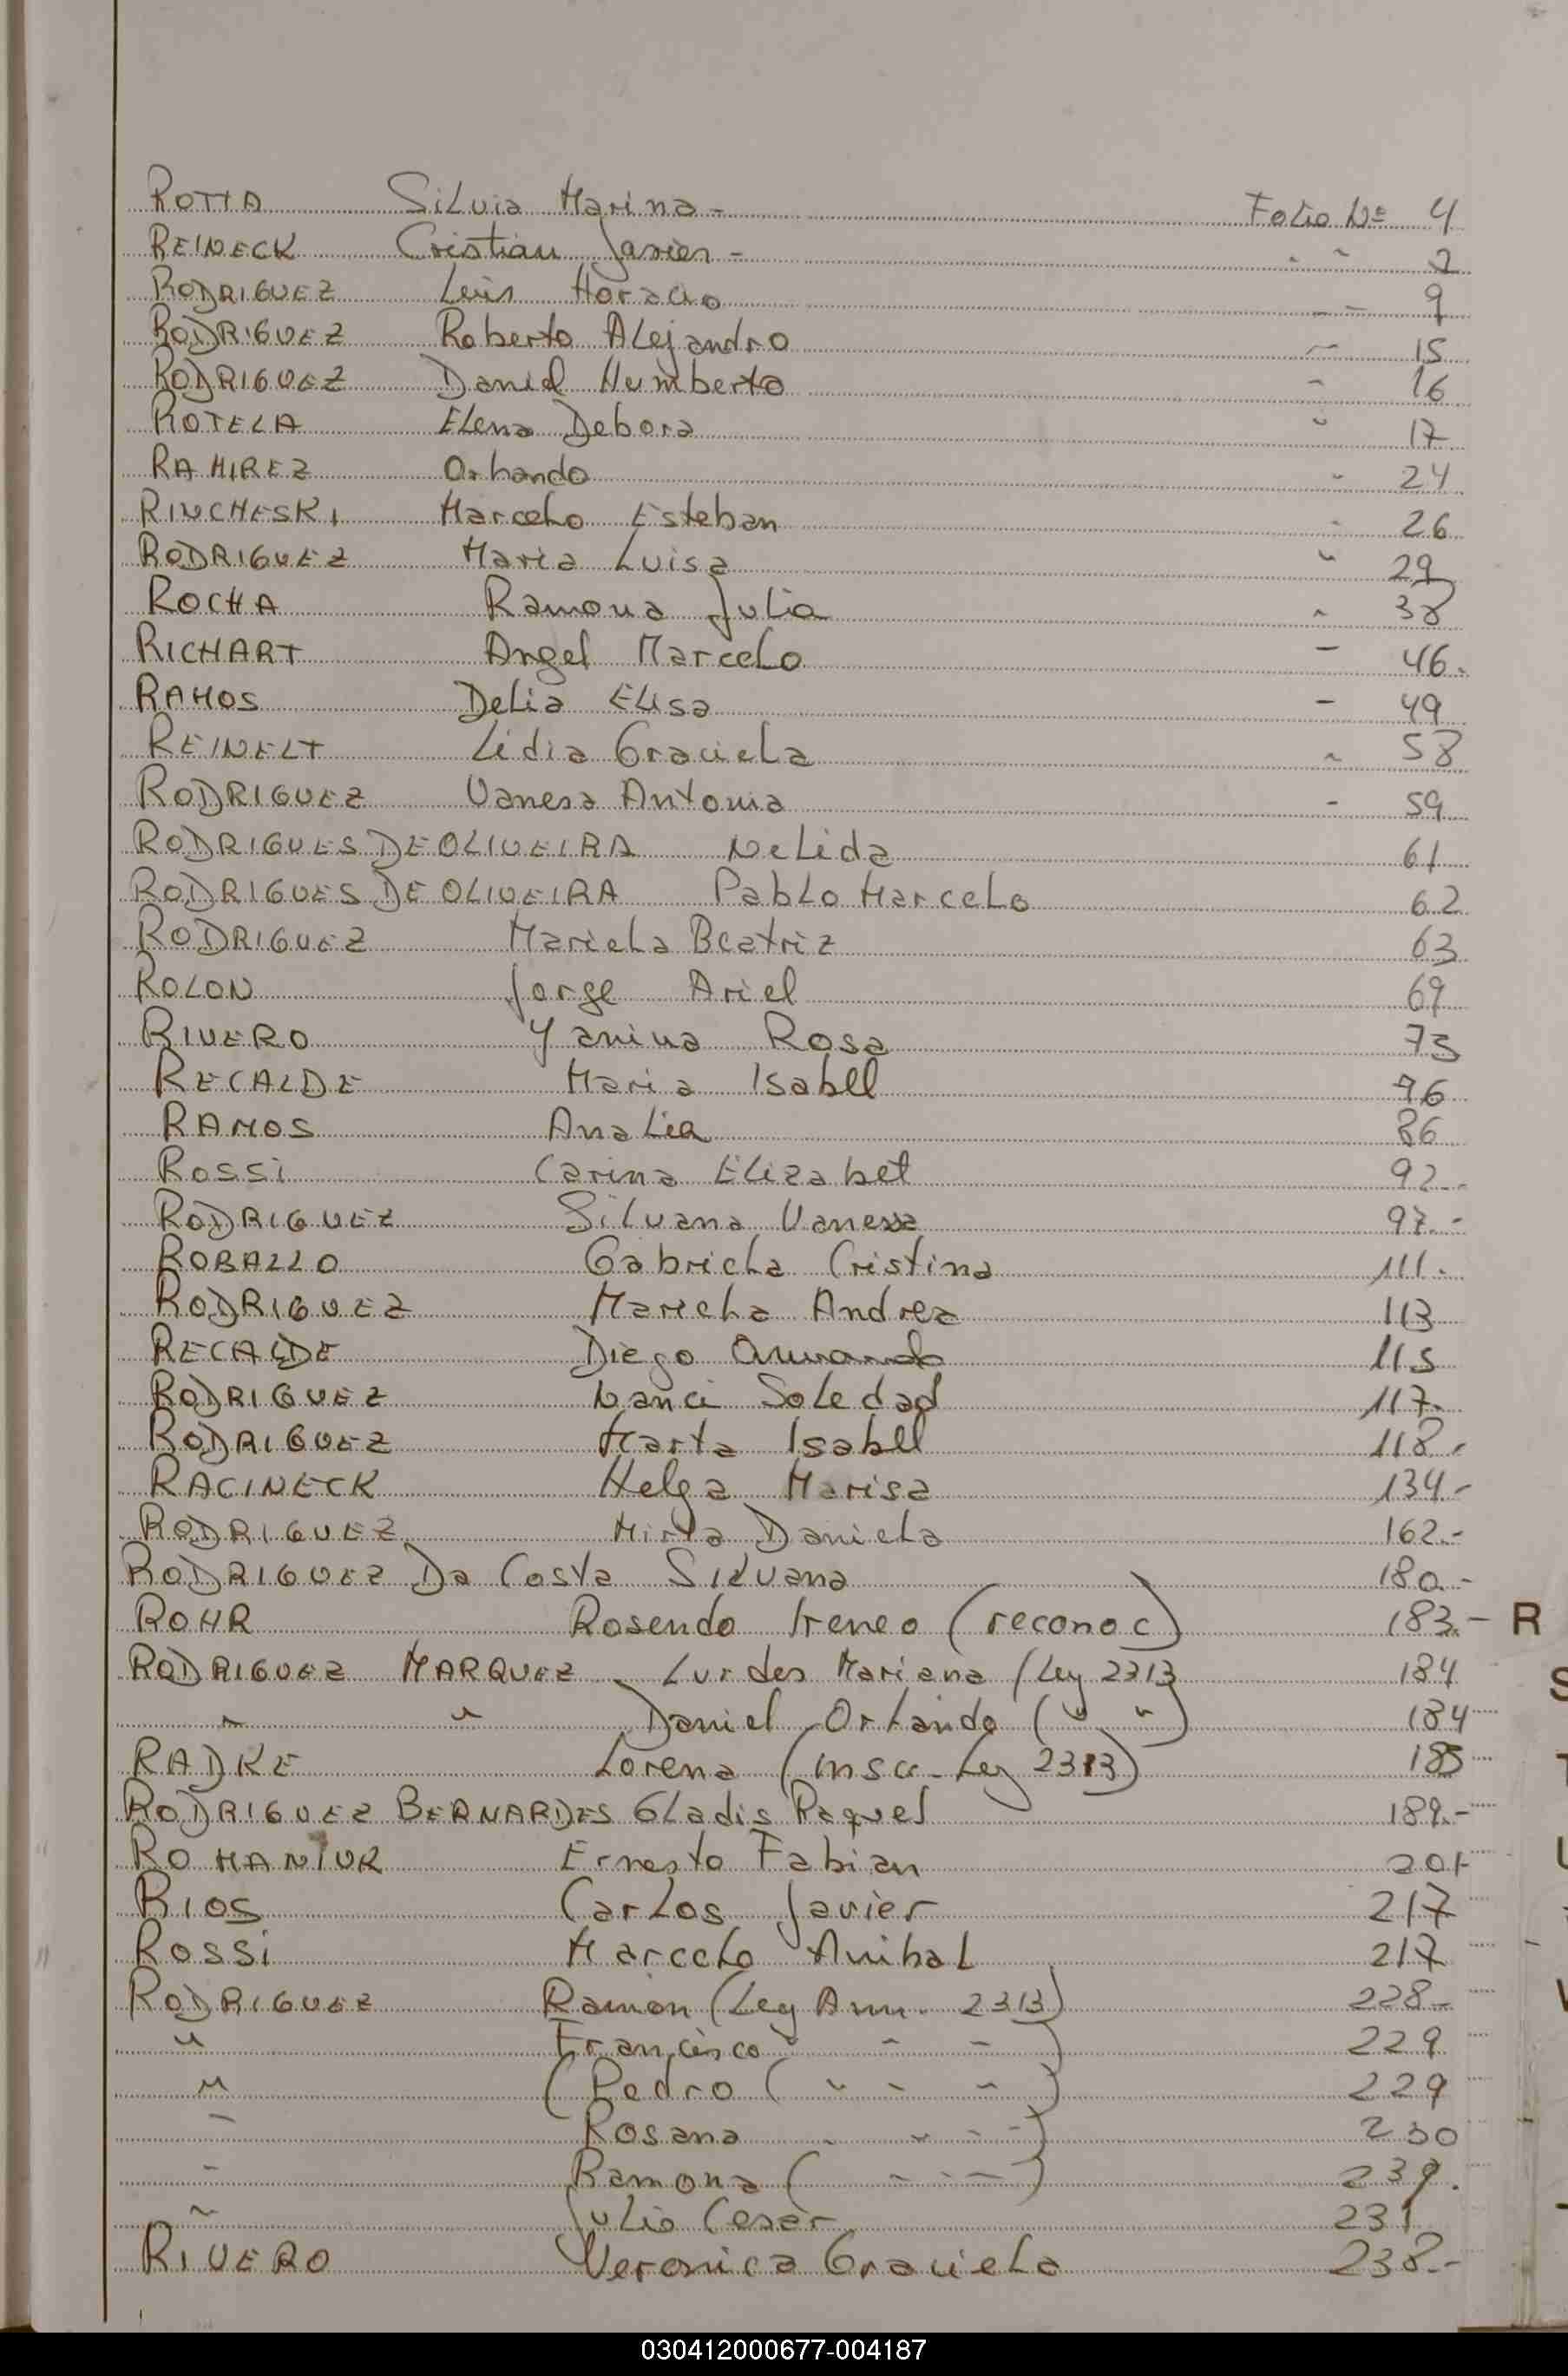 ROTTA Silvia Marina - Folio Nº 4
REINECK Cristian Javier - " " 7
RODRIGUEZ Luis Horacio " " 9
RODRIGUEZ Roberto Alejandro " 15
RODRIGUEZ Daniel Humberto " 16
ROTELA Elena Debora " 17
RAMIREZ Orlando " 24
RINCHESKI Marcelo Esteban " 26
RODRIGUEZ Maria Luisa " 29
ROCHA Ramona Julia " 38
RICHART Angel Marcelo - 46.
RAMOS Delia Elisa - 49
REINELT Lidia Graciela " 58
RODRIGUEZ Vanesa Antonia - 59
RODRIGUES DE OLIVEIRA Nelida 61
RODRIGUES DE OLIVEIRA Pablo Marcelo 62
RODRIGUEZ Mariela Beatriz 63
ROLON Jorge Ariel 69
RIVERO Yanina Rosa 73
RECALDE Maria Isabel 76
RAMOS Analia 86
ROSSi Carina Elizabet 92.-
RODRIGUEZ Silvana Vanessa 97.-
ROBALLO Gabriela Cristina 111.
RODRIGUEZ Mariela Andrea 113
RECALDE Diego Armando 115
RODRIGUEZ Nanci Soledad 117.
RODRIGUEZ Marta Isabel 118.
RACINECK Helga Marisa 134.-
RODRIGUEZ Mirta Daniela 162.-
RODRIGUEZ Da Costa Silvana 180.-
ROHR Rosendo Ireneo (reconoc) 183.- R
RODRIGUEZ MARQUEZ Lurdes Mariana (Ley 2313 184
" " Daniel Orlando ( " " ) 184
RADKE Lorena (insc. Ley 2313) 185
RODRIGUEZ BERNARDES Gladis Raquel 189.-
ROMANIUK Ernesto Fabian 201-
RIOS Carlos Javier 217
ROSSi Marcelo Anibal 217
RODRIGUEZ Ramon (Ley Amn. 2313) 228-
" Francisco " " " ) 229
" (Pedro ( " " " ) 229
" Rosana " " " " ) 230
" Ramona ( " " " ) 239.
" Julio Cesar 231
RIVERO Veronica Graciela 238.-
030412000677-004187